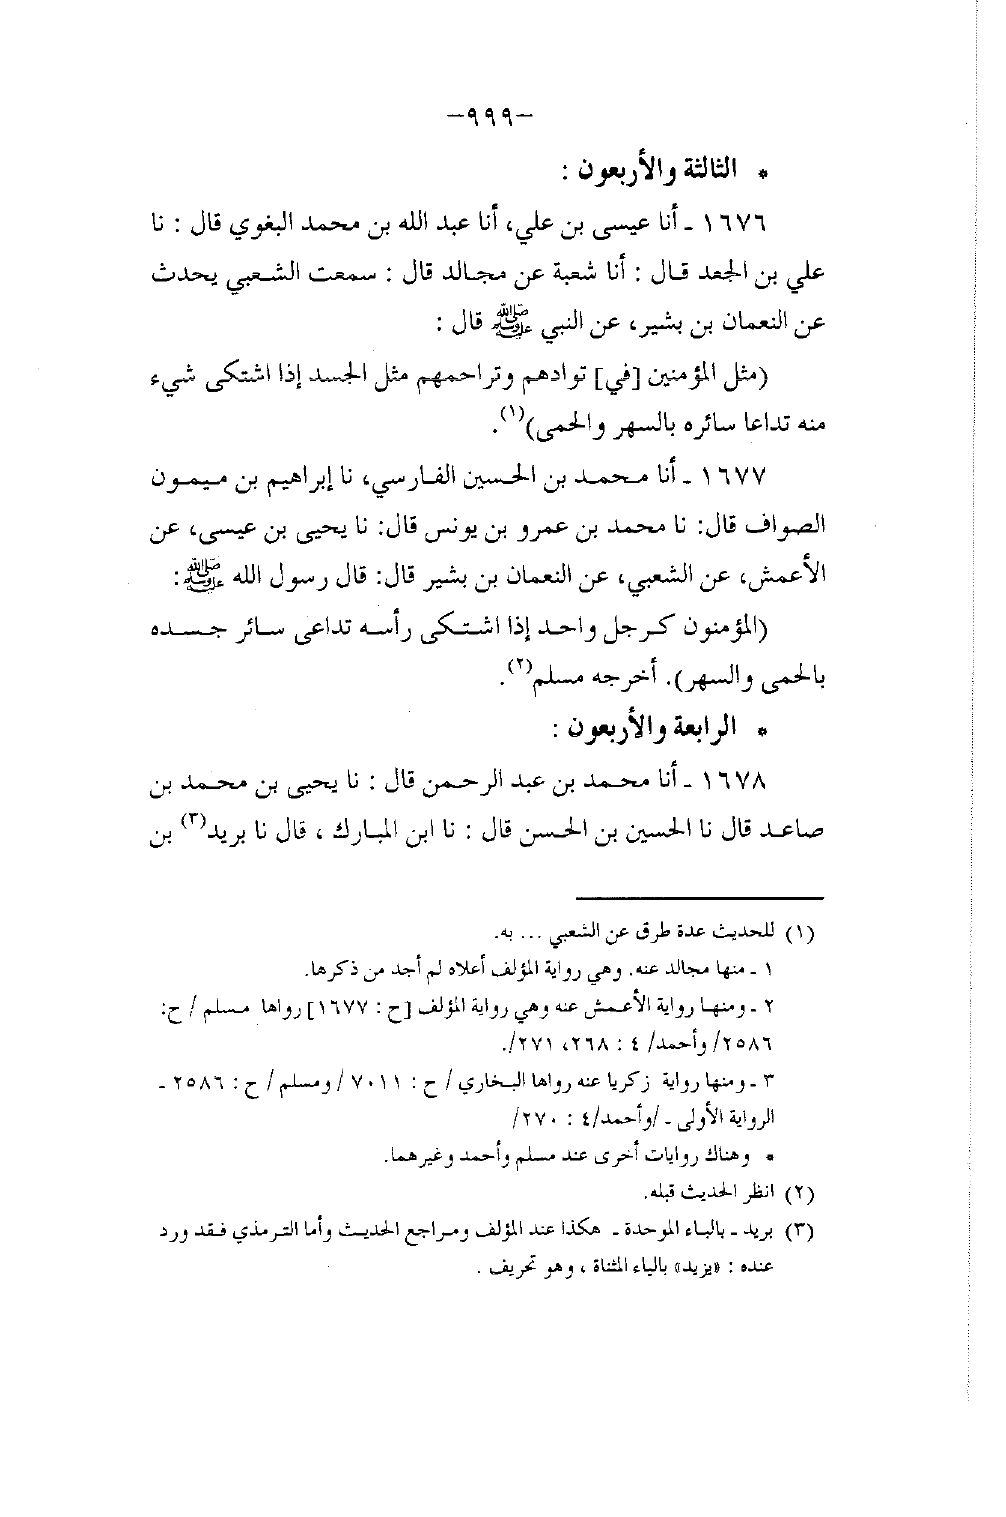 -٩٩٩-
* الثالثة والأربعون :
١٦٧٦ ـ أنا عيسى بن علي، أنا عبد الله بن محمد البغوي قال : نا
علي بن الجعد قال : أنا شعبة عن مجالد قال : سمعت الشعبي يحدث
عن النعمان بن بشير، عن النبي ﷺ قال :
(مثل المؤمنين [في] توادهم وتراحمهم مثل الجسد إذا اشتكى شيء
منه تداعا سائره بالسهر والحمى)(١).
١٦٧٧ ـ أنا محمد بن الحسين الفارسي، نا إبراهيم بن ميمون
الصواف قال: نا محمد بن عمرو بن يونس قال: نا يحيى بن عيسى، عن
الأعمش، عن الشعبي، عن النعمان بن بشير قال: قال رسول الله ﷺ:
(المؤمنون كرجل واحد إذا اشتكى رأسه تداعى سائر جسده
بالحمى والسهر). أخرجه مسلم(٢).
* الرابعة والأربعون :
١٦٧٨ ـ أنا محمد بن عبد الرحمن قال : نا يحيى بن محمد بن
صاعد قال نا الحسين بن الحسن قال : نا ابن المبارك ، قال نا بريد(٣) بن
(١) للحديث عدة طرق عن الشعبي ... به.
١ ـ منها مجالد عنه. وهي رواية المؤلف أعلاه لم أجد من ذكرها.
٢ ـ ومنها رواية الأعمش عنه وهي رواية المؤلف [ح : ١٦٧٧] رواها مسلم / ح:
٢٥٨٦/ وأحمد/ ٤ : ٢٦٨، ٢٧١/.
٣ ـ ومنها رواية زكريا عنه رواها البخاري / ح : ٧٠١١ / ومسلم / ح : ٢٥٨٦ ـ
الرواية الأولى ـ /وأحمد/٤ : ٢٧٠/
* وهناك روايات أخرى عند مسلم وأحمد وغيرهما.
(٢) انظر الحديث قبله.
(٣) بريد ـ بالباء الموحدة ـ هكذا عند المؤلف ومراجع الحديث وأما الترمذي فقد ورد
عنده : «يزيد» بالياء المثناة ، وهو تحريف .